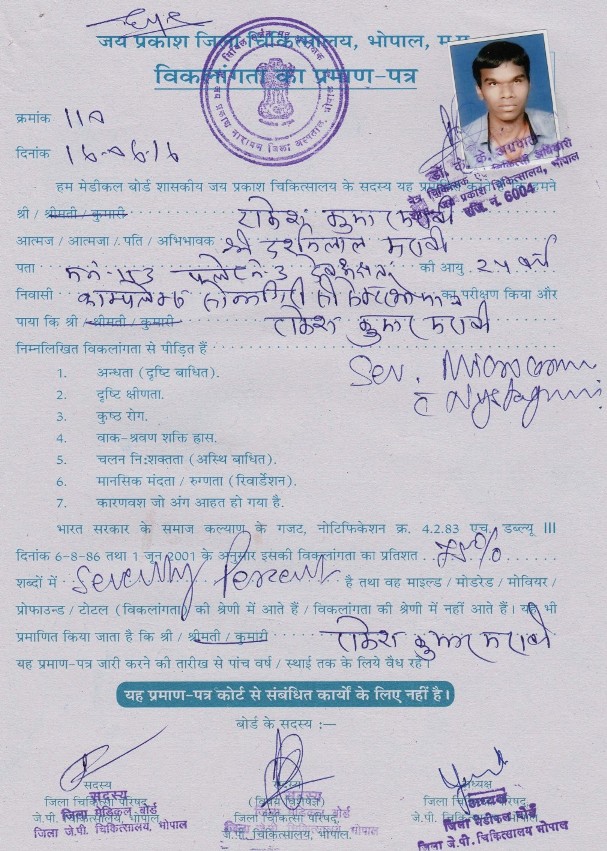 Eye
जय प्रकाश जिला चिकित्सालय, भोपाल, म.प्र.
विकलांगता का प्रमाण-पत्र
क्रमांक 110
दिनांक 16-06-16
डॉ. के. के. अग्रवाल
जय प्रकाश चिकित्सालय, भोपाल
रजि. नं. 6004
हम मेडीकल बोर्ड शासकीय जय प्रकाश चिकित्सालय के सदस्य यह प्रमाणित करते हैं कि हमने
श्री / श्रीमती / कुमारी राकेश कुमार मरावी
आत्मज / आत्मजा / पति / अभिभावक श्री दर्शनलाल मरावी
पता की आयु 24 वर्ष
निवासी काम्पलेक्स का परीक्षण किया और
पाया कि श्री / श्रीमती / कुमारी राकेश कुमार मरावी
निम्नलिखित विकलांगता से पीड़ित हैं
Sev.
1. अन्धता (दृष्टि बाधित).
2. दृष्टि क्षीणता.
3. कुष्ठ रोग.
4. वाक-श्रवण शक्ति ह्रास.
5. चलन नि:शक्तता (अस्थि बाधित).
6. मानसिक मंदता / रुग्णता (रिवार्डेशन).
7. कारणवश जो अंग आहत हो गया है.
भारत सरकार के समाज कल्याण के गजट, नोटिफिकेशन क्र. 4.2.83 एच. डब्ल्यू III
दिनांक 6-8-86 तथा 1 जून 2001 के अनुसार इसकी विकलांगता का प्रतिशत
शब्दों में Seventy Percent है तथा वह माइल्ड / मोडरेड / मोवियर /
प्रोफाउन्ड / टोटल (विकलांगता) की श्रेणी में आते हैं / विकलांगता की श्रेणी में नहीं आते हैं। यह भी
प्रमाणित किया जाता है कि श्री / श्रीमती / कुमारी राकेश कुमार मरावी
यह प्रमाण-पत्र जारी करने की तारीख से पांच वर्ष / स्थाई तक के लिये वैध रहे।
यह प्रमाण-पत्र कोर्ट से संबंधित कार्यो के लिए नहीं है।
बोर्ड के सदस्य :—
सदस्य (सदस्य) अध्यक्ष
सदस्य अध्यक्ष
जिला चिकित्सा परिषद, (विषय विशेषज्ञ) जिला चिकित्सा परिषद,
जिला मेडिकल बोर्ड जिला मेडीकल बोर्ड
जे.पी. चिकित्सालय, भोपाल जे.पी. चिकित्सालय, भोपाल. जे.पी. चिकित्सालय, भोपाल
जिला जे.पी. चिकित्सालय, भोपाल जिला जे.पी. चिकित्सालय भोपाल